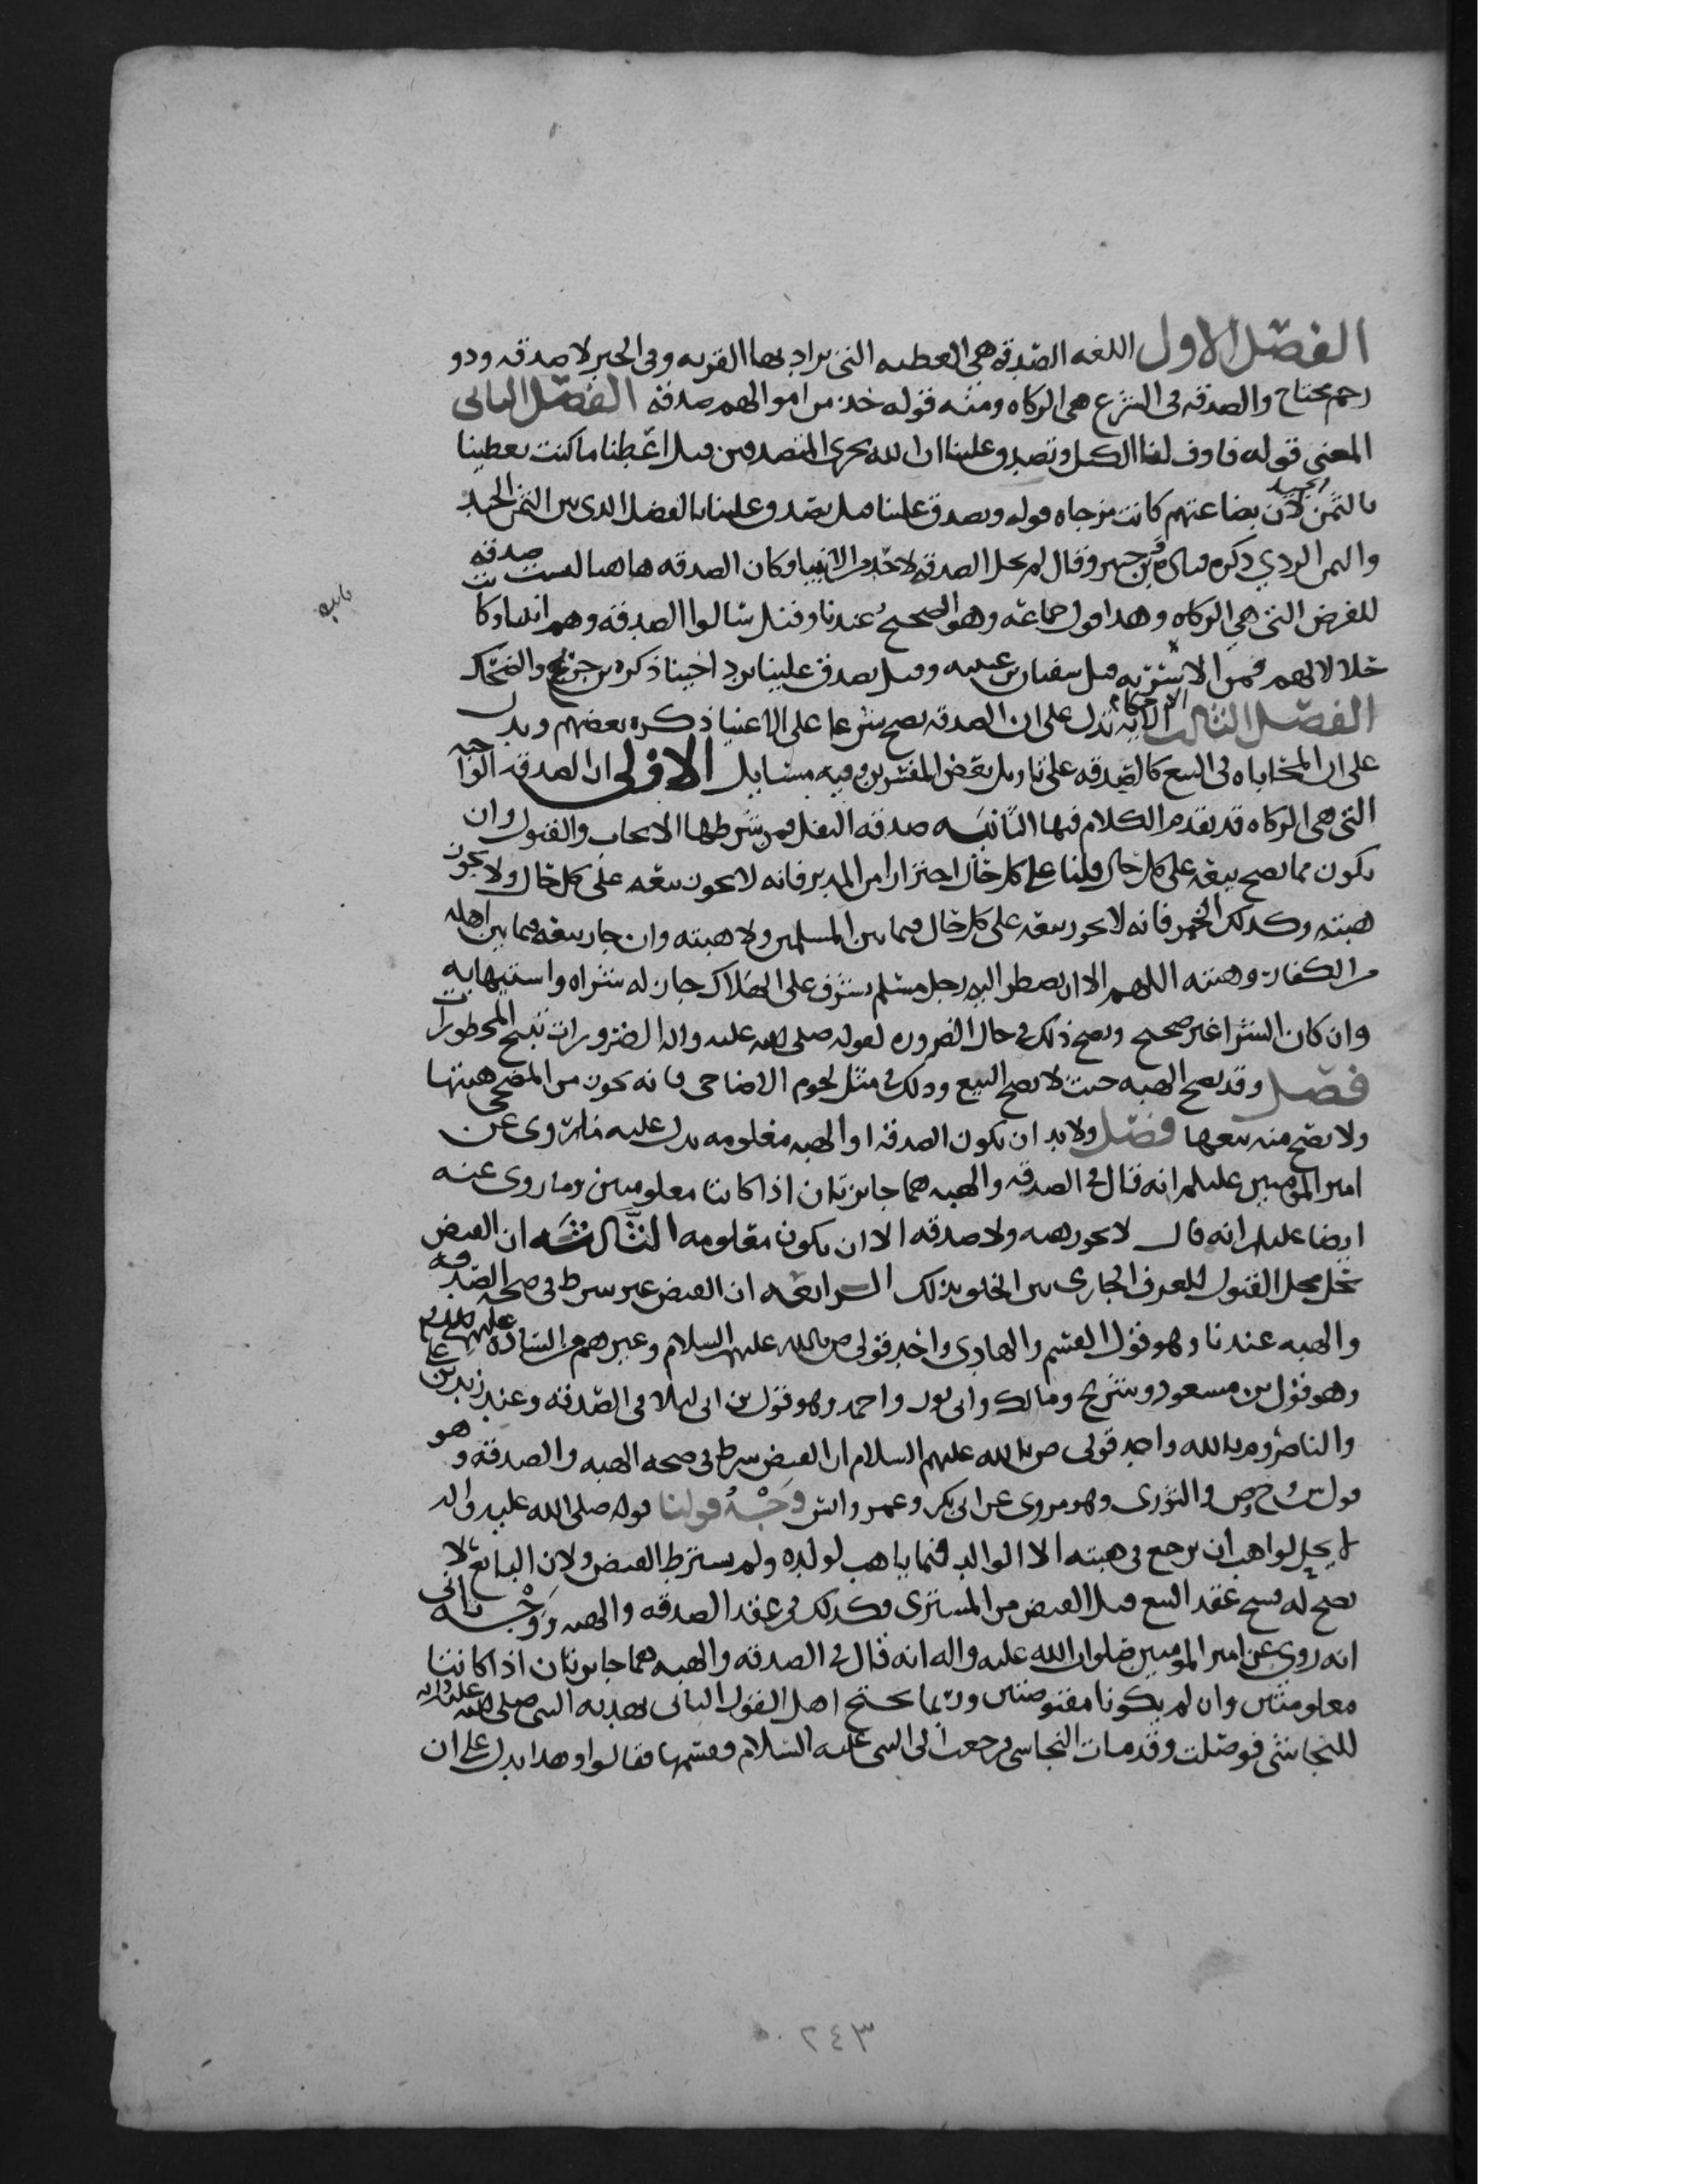 الفصل الاول اللغه الصدقه هي العطيه التي يراد بها القربه وفي الخبر لا صدقه وذو
رحم محتاج والصدقه في الشرع هي الزكاه ومنه قوله خذ من اموالهم صدقه الفصل الثاني
المعنى قوله فاوف لنا الكيل وتصدق علينا ان الله يجزي المتصدقين قيل اعطنا ما كنت تعطينا
بالثمن الجيد لان بضاعتهم كانت مزجاه قوله وتصدق علينا قيل تصدق علينا بالفضل الذي بين الثمن الجيد
والثمن الردي ذكره وقال لم تحل الصدقه لاحد من الانبيا وكان الصدقه هاهنا ليست صدقه
للفرض التي هي الزكاه وهذا قول جماعه وهو الصحيح عندنا وقيل سالوا الصدقه وهم انبيا وكا
حلالا لهم قيل سفيان بن عيينه وقيل تصدق علينا برد اخينا ذكره بن جريج والضحاك
الفصل الثالث الاحكام الايه تدل على ان الصدقه تصح شرعا على الاغنيا ذكره بعضهم ويدل
على ان المحاباه في البيع كالصدقه على تاويل بعض المفسرين وفيه مسايل الاولى ان الصدقه الواجبه
التي هي الزكاه قد تقدم الكلام فيها الثانيه صدقه النفل فمن شرطها الايجاب والقبول وان
يكون مما يصح بيعه على كل حال قلنا على كل حال احترازا من المدبر فانه لا يجوز بيعه على كل حال ولا يجوز
هبته وكذلك الخمر فانه لا يجوز بيعه على كل حال فيما بين المسلمين ولا هبته وان جاز بيعه فيما بين اهله
من الكفار وهبته اللهم الا ان يضطر اليه رجل مسلم يشرف على الهلاك جاز له شراه واستيهابه
وان كان الشرا غير صحيح ويصح ذلك في حال الضروره لقوله صلى الله عليه واله الضرورات تبيح المحظورات
فصل وقد تصح الهبه حيث لا يصح البيع وذلك في مثل لحوم الاضاحي فانه يجوز من المضحي هبتها
ولا يصح منه بيعها فصل ولا بد ان تكون الصدقه او الهبه معلومه يدل عليه ما روي عن
امير المومنين عليلم انه قال في الصدقه والهبه هما جايزتان اذا كانتا معلومتين وما روي عنه
ايضا عليلم انه قال لا يجوز هبه ولا صدقه الا ان تكون معلومه الثالثه ان القبض
يحل محل القبول للعرف الجاري بين الخلق بذلك الرابعه ان القبض غير شرط في صحه الصدقه
والهبه عندنا وهو قول القسم والهادي واحد قولي ص بالله عليهم السلام وغيرهم من الساده عليهم السلم
وهو قول بن مسعود وشريح ومالك وابي ثور واحمد وهو قول بن ابي ليلا في الصدقه وعند زيد بن علي
والناصر وم بالله واحد قولي ص بالله عليهم السلام ان القبض شرط في صحه الهبه والصدقه وهو
قول ش وح وص والثوري وهو مروي عن ابي بكر وعمر وانس وجه قولنا قوله صلى الله عليه واله
لا يحل لواهب ان يرجع في هبته الا الوالد فيما يهب لولده ولم يشترط القبض ولان البايع لا
يصح له فسخ عقد البيع قبل القبض من المشتري فكذلك في عقد الصدقه والهبه ووجه ثاني
انه روي عن امير المومنين صلوات الله عليه واله انه قال في الصدقه والهبه هما جايزتان اذا كانتا
معلومتين وان لم يكونا مقبوضتين وربما يحتج اهل القول الثاني بهديه النبي صلى الله عليه واله
للنجاشي فوصلت وقد مات النجاشي فرجعت الى النبي عليه السلام وقسمها فقالوا وهذا يدل على ان
٢٤٣